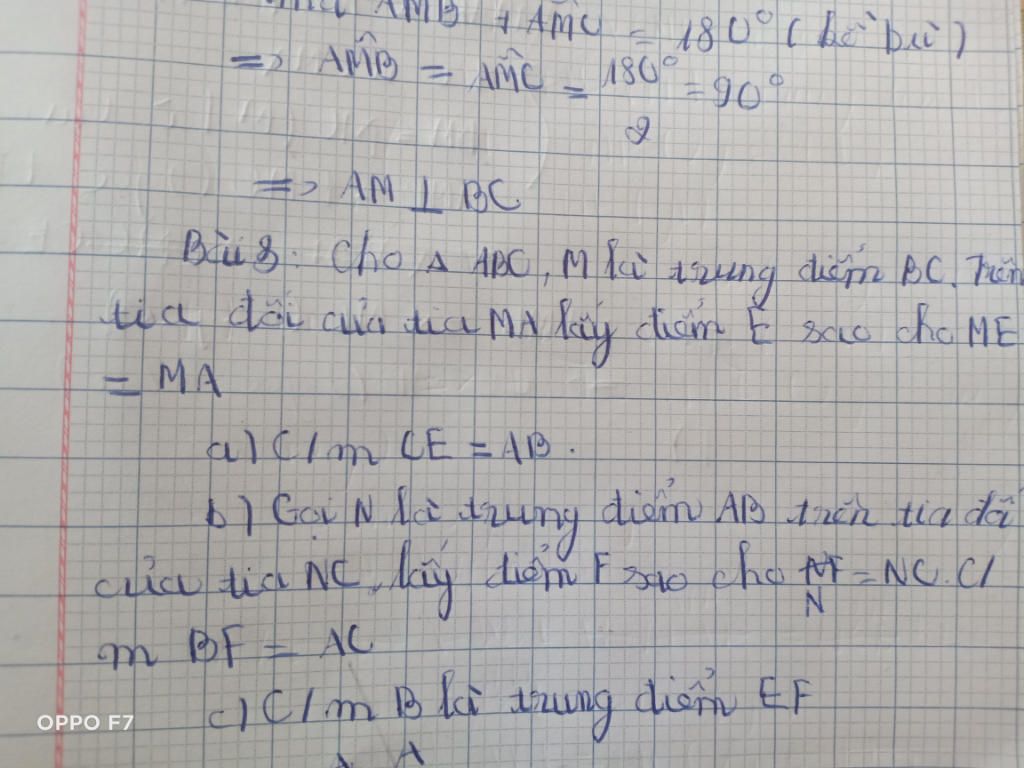 AMB + AMC = 180° (kề bù)
=> AMB = AMC = 180°/2 = 90°
=> AM ⊥ BC
Bài 8: Cho Δ ABC, M là trung điểm BC. Trên
tia đối của tia MA lấy điểm E sao cho ME
= MA
a) C/m CE = AB.
b) Gọi N là trung điểm AB trên tia đối
của tia NC, lấy điểm F sao cho NF = NC. C/
m BF = AC
c) C/m B là trung điểm EF
OPPO F7